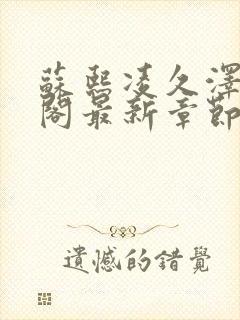 蘇熙凌久澤
閣最新章節
遺憾的錯覺